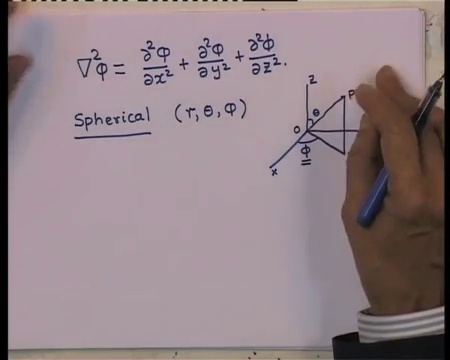 ∇²φ = ∂²φ/∂x² + ∂²φ/∂y² + ∂²φ/∂z².
Spherical (r, θ, φ)
z
P
θ
O
φ
x